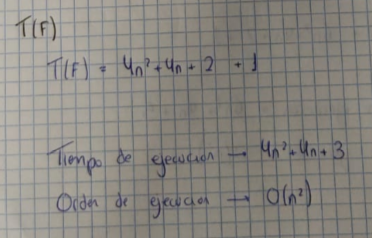 T(F)
T(F) = 4n² + 4n + 2 + 1
Tiempo de ejecucion → 4n² + 4n + 3
Orden de ejecucion → O(n²)